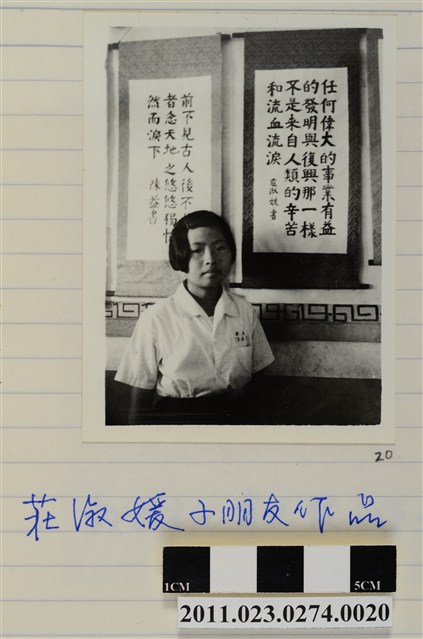 任何偉大的事業有益
的發明與復興那一樣
不是來自人類的辛苦
和流血流淚
莊淑媛書
前不見古人後不
者念天地之悠悠獨愴
然而淚下
陳益書
20
莊淑媛小朋友作品
1CM 5CM
2011.023.0274.0020